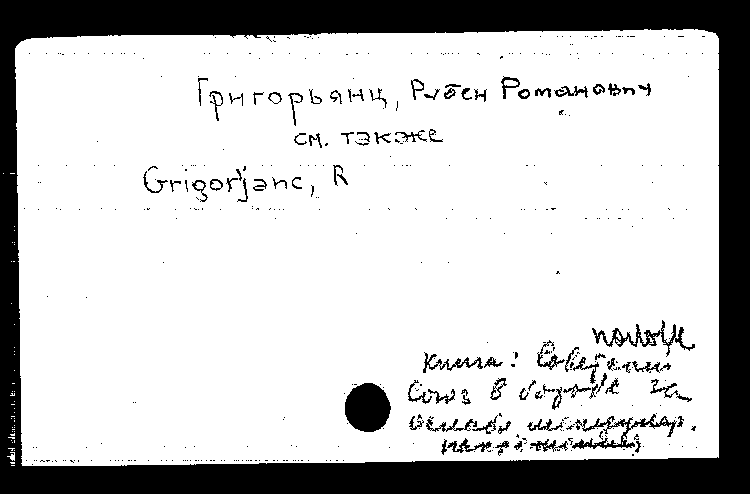 Григорьянц, Рубен Романович
см. также
Grigor'janc, R
книга: Советский
Союз в борьбе за
ослабл междунар.
напряжения